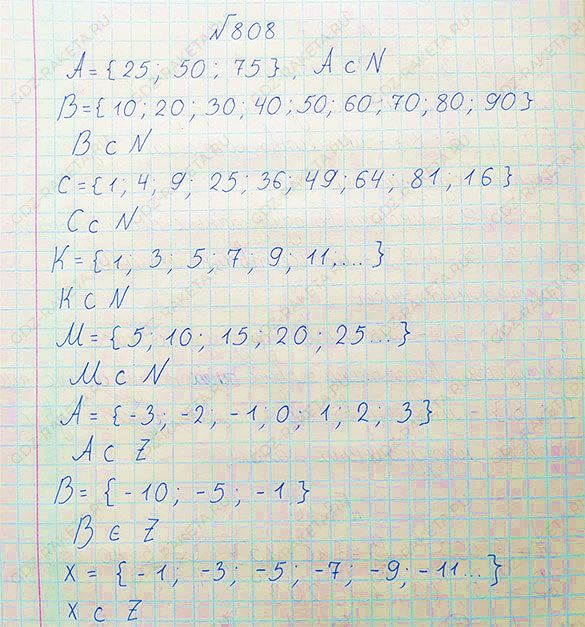 №808
A = {25; 50; 75}, A ⊂ N
B = {10; 20; 30; 40; 50; 60; 70; 80; 90}
B ⊂ N
C = {1; 4; 9; 25; 36; 49; 64; 81; 16}
C ⊂ N
K = {1; 3; 5; 7, 9; 11,...}
K ⊂ N
M = {5; 10; 15; 20; 25...}
M ⊂ N
A = {-3; -2; -1; 0; 1; 2; 3}
A ⊂ Z
B = {-10; -5; -1}
B ∈ Z
X = {-1; -3; -5; -7; -9; -11...}
X ⊂ Z